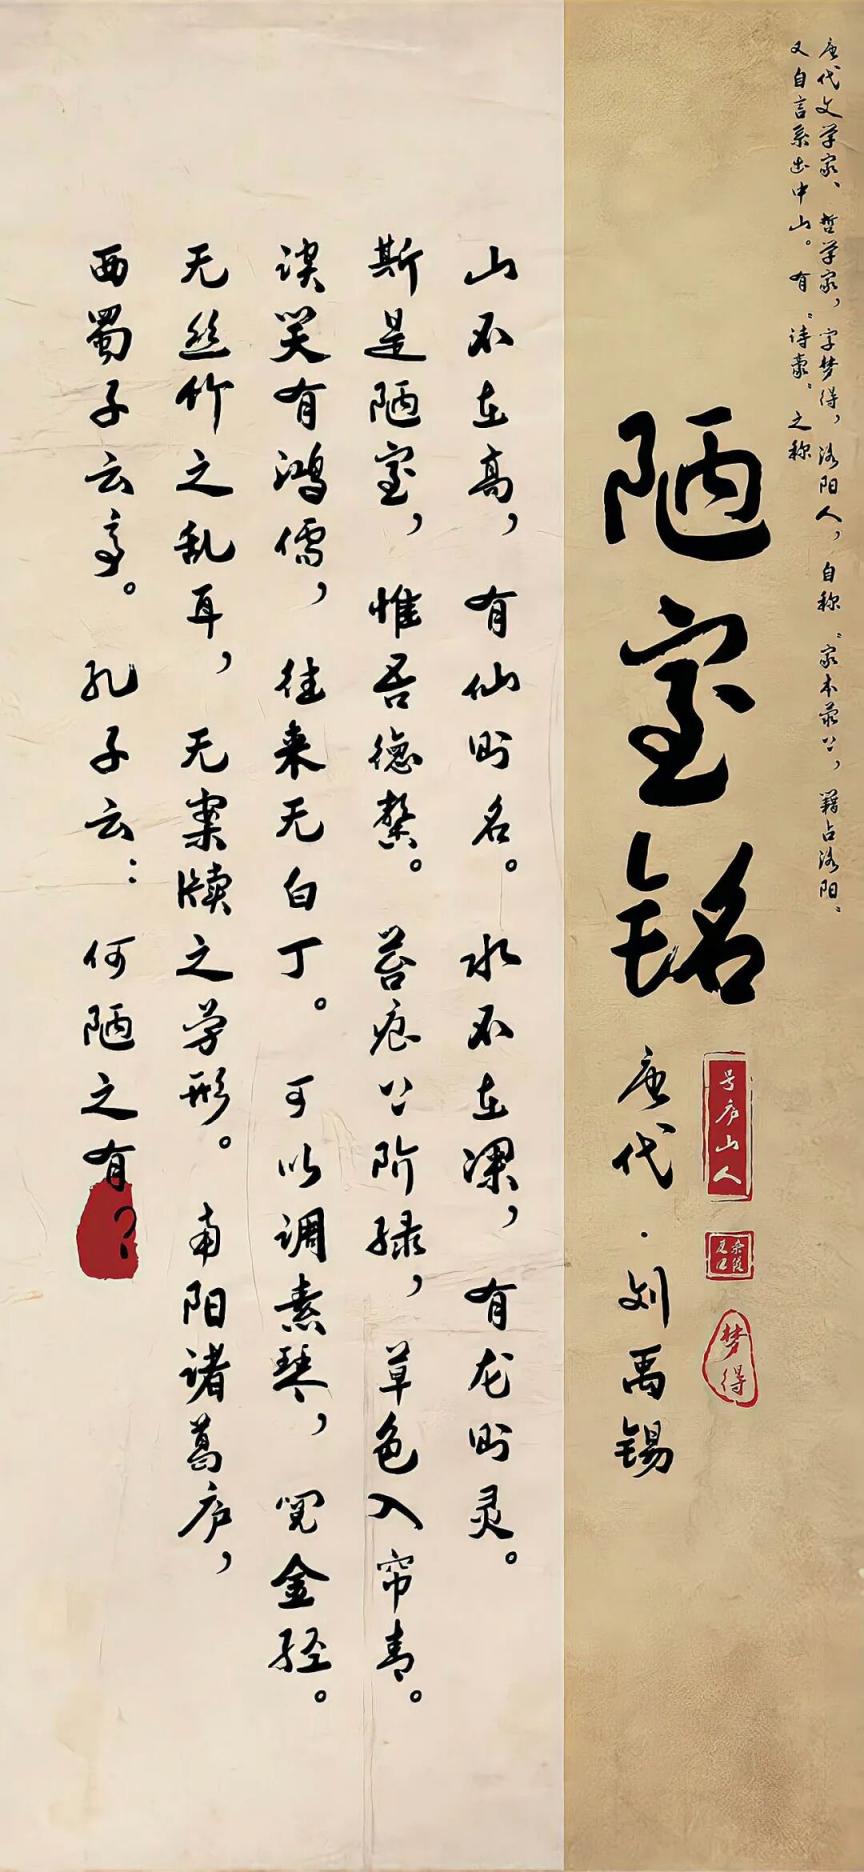 唐代文学家、哲学家,字梦得,洛阳人,自称“家本荥上,籍占洛阳”
又自言系出中山。有“诗豪”之称
陋室铭
唐代·刘禹锡
号庐山人
梦得
山不在高,有仙则名。水不在深,有龙则灵。
斯是陋室,惟吾德馨。苔痕上阶绿,草色入帘青。
谈笑有鸿儒,往来无白丁。可以调素琴,阅金经。
无丝竹之乱耳,无案牍之劳形。南阳诸葛庐,
西蜀子云亭。孔子云:何陋之有?